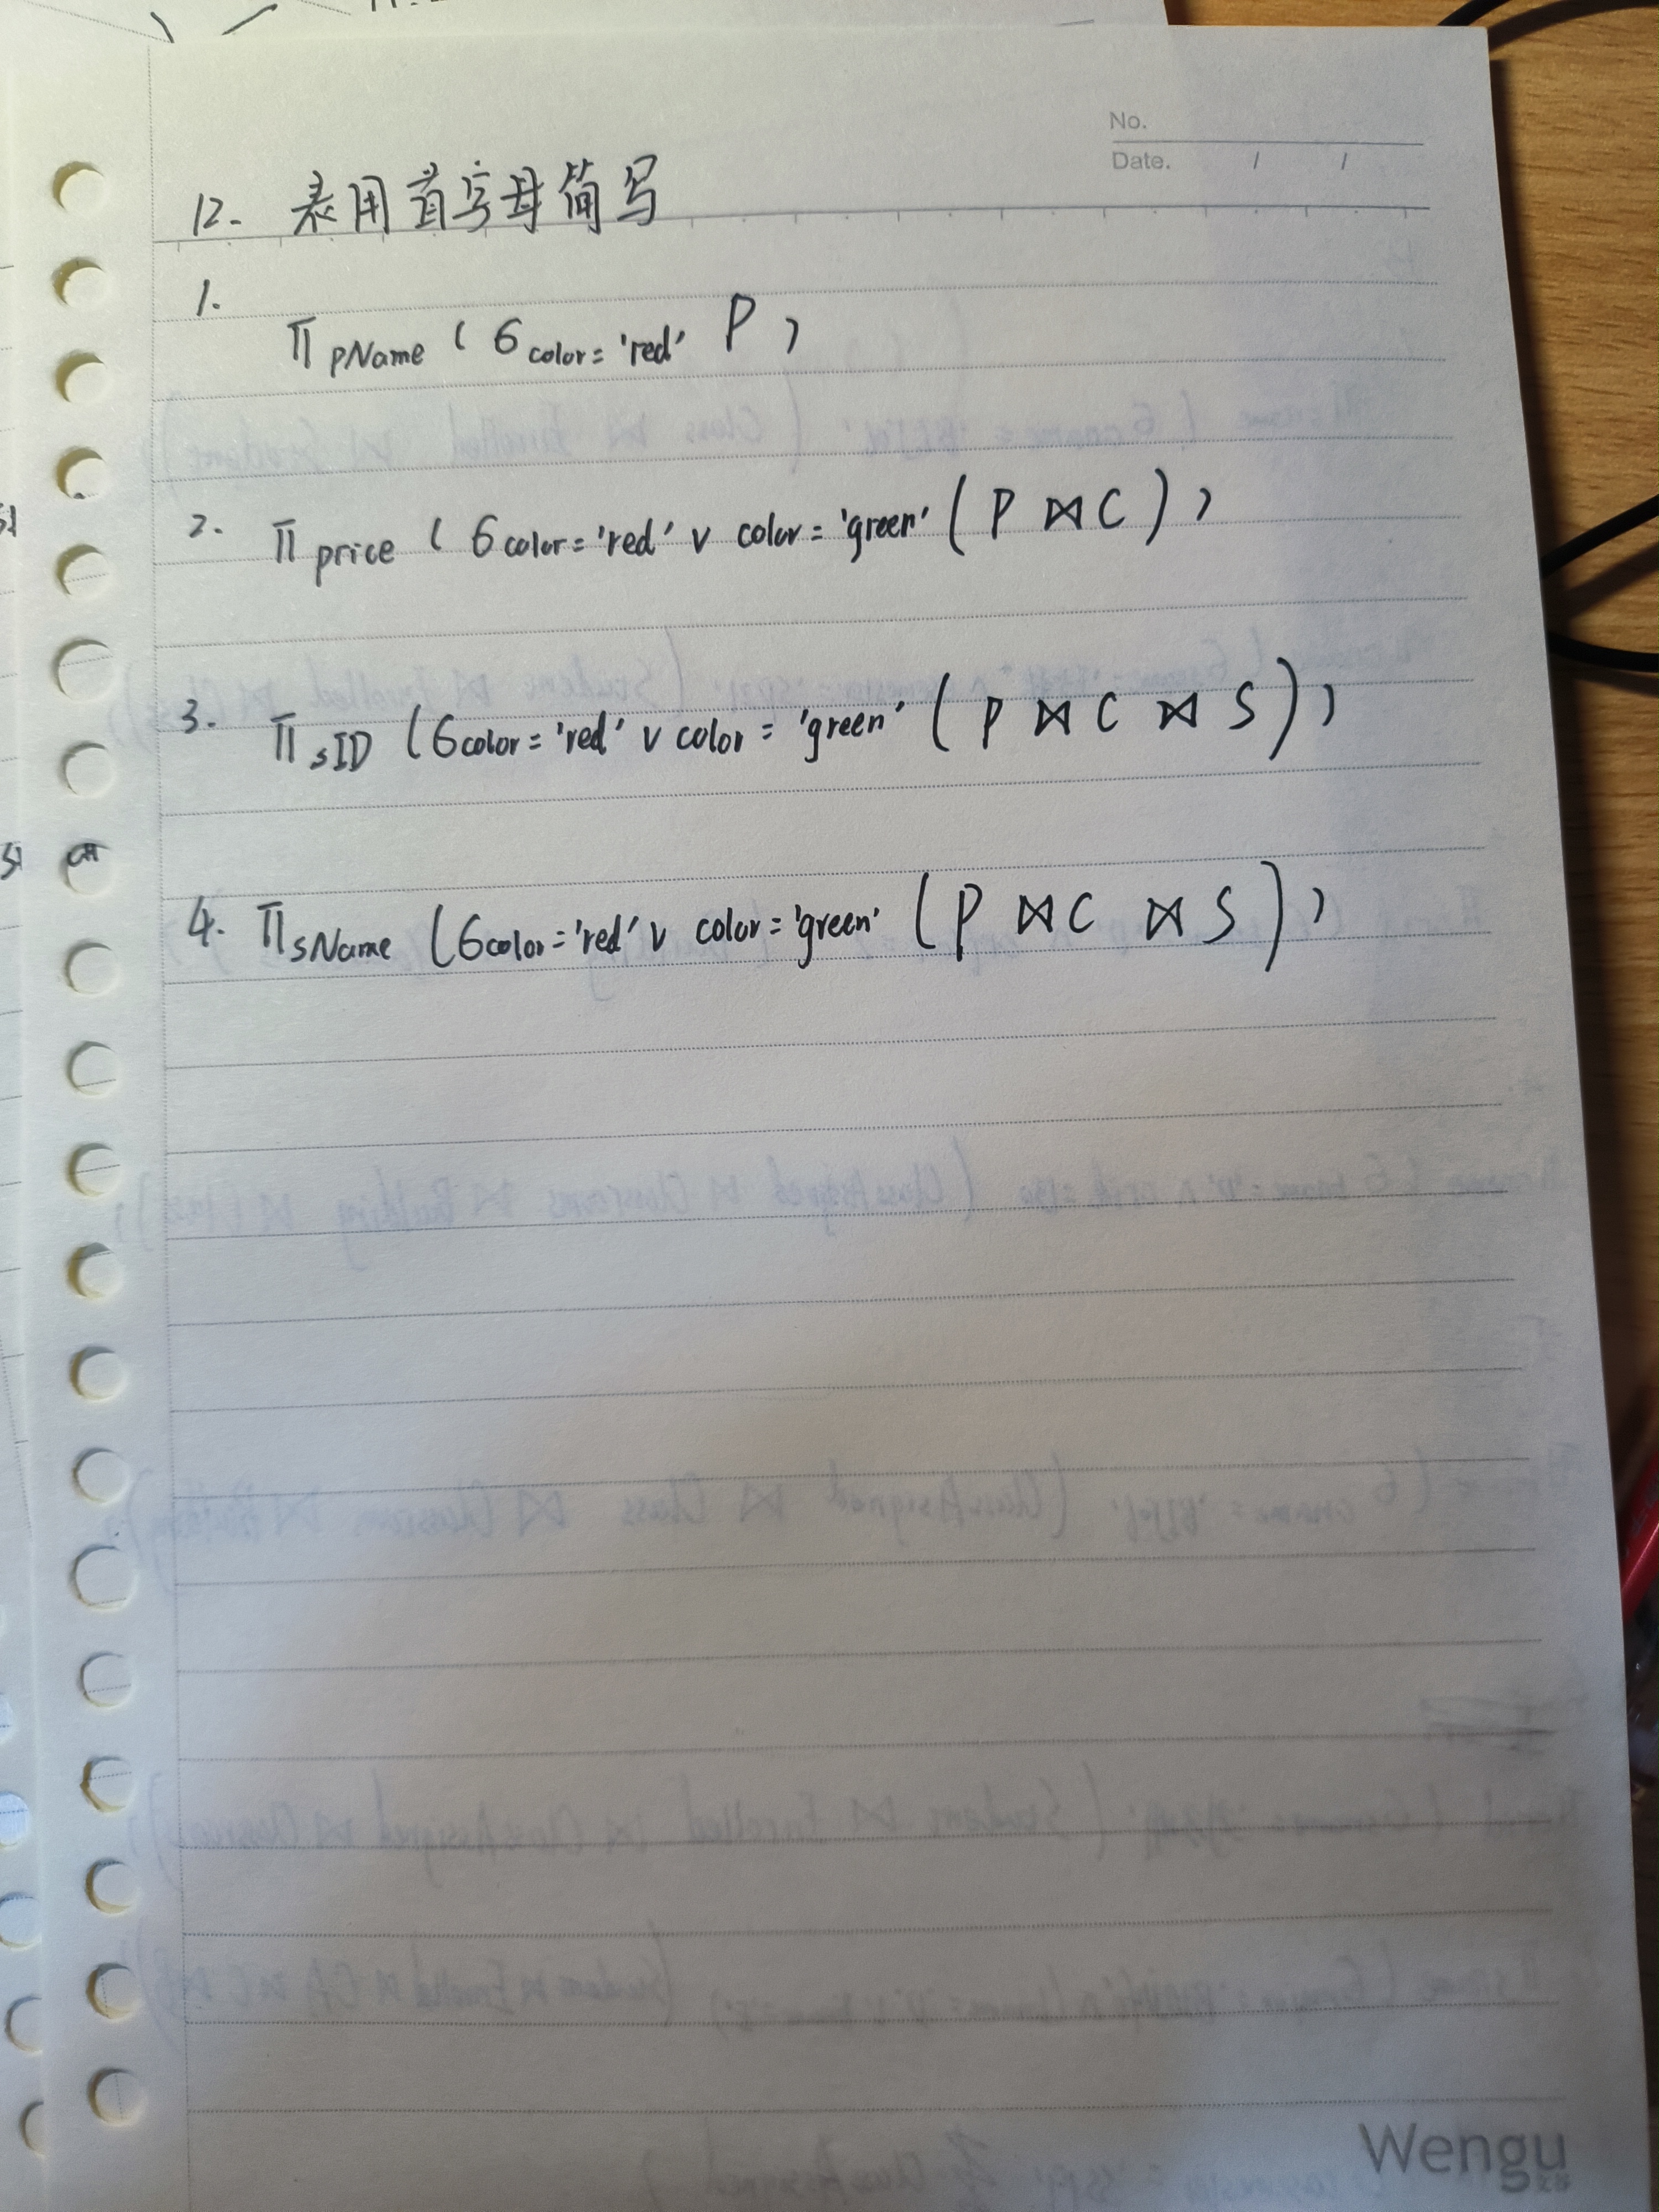 No.
Date. / /
12. 表用首字母简写
1.
π pName ( σ color='red' P )
2. π price ( σ color='red' ∨ color='green' ( P ⋈ C ) )
3. π sID ( σ color='red' ∨ color='green' ( P ⋈ C ⋈ S ) )
4. π sName ( σ color='red' ∨ color='green' ( P ⋈ C ⋈ S ) )
Wengu